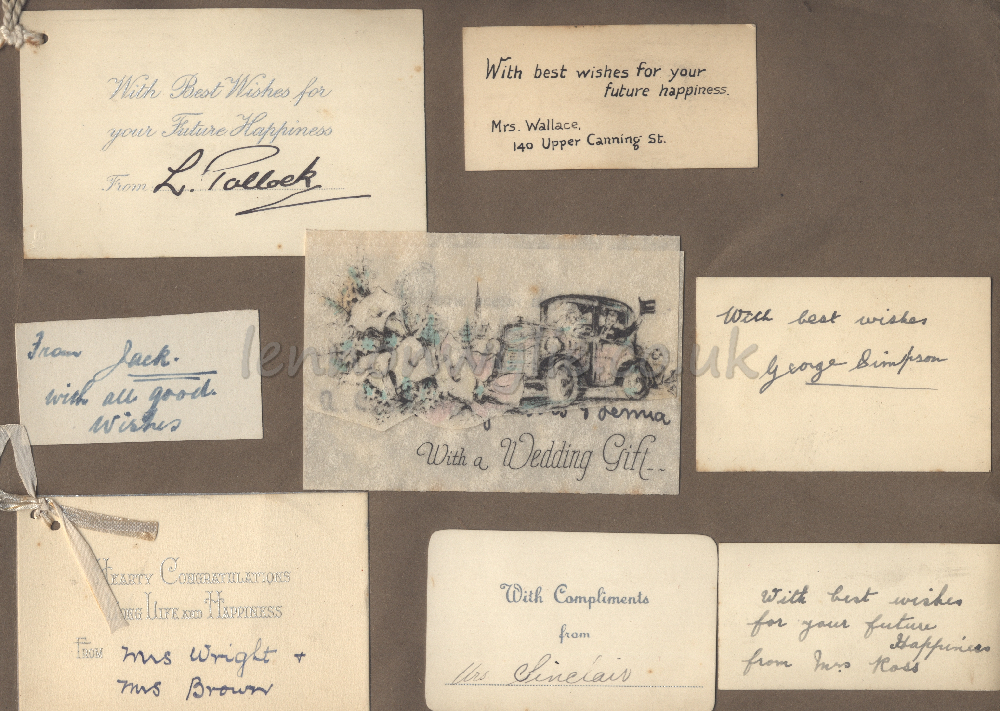 With Best Wishes for
your Future Happiness
From L. Pollock
With best wishes for your
future happiness.
Mrs. Wallace,
140 Upper Canning St.
From Jack.
with all good
Wishes
With a Wedding Gift
With best wishes
George Simpson
Hearty Congratulations
Long Life and Happiness
From Mrs Wright +
Mrs Brown
With Compliments
from
Mrs Sinclair
With best wishes
for your future
Happiness
from Mrs Ross